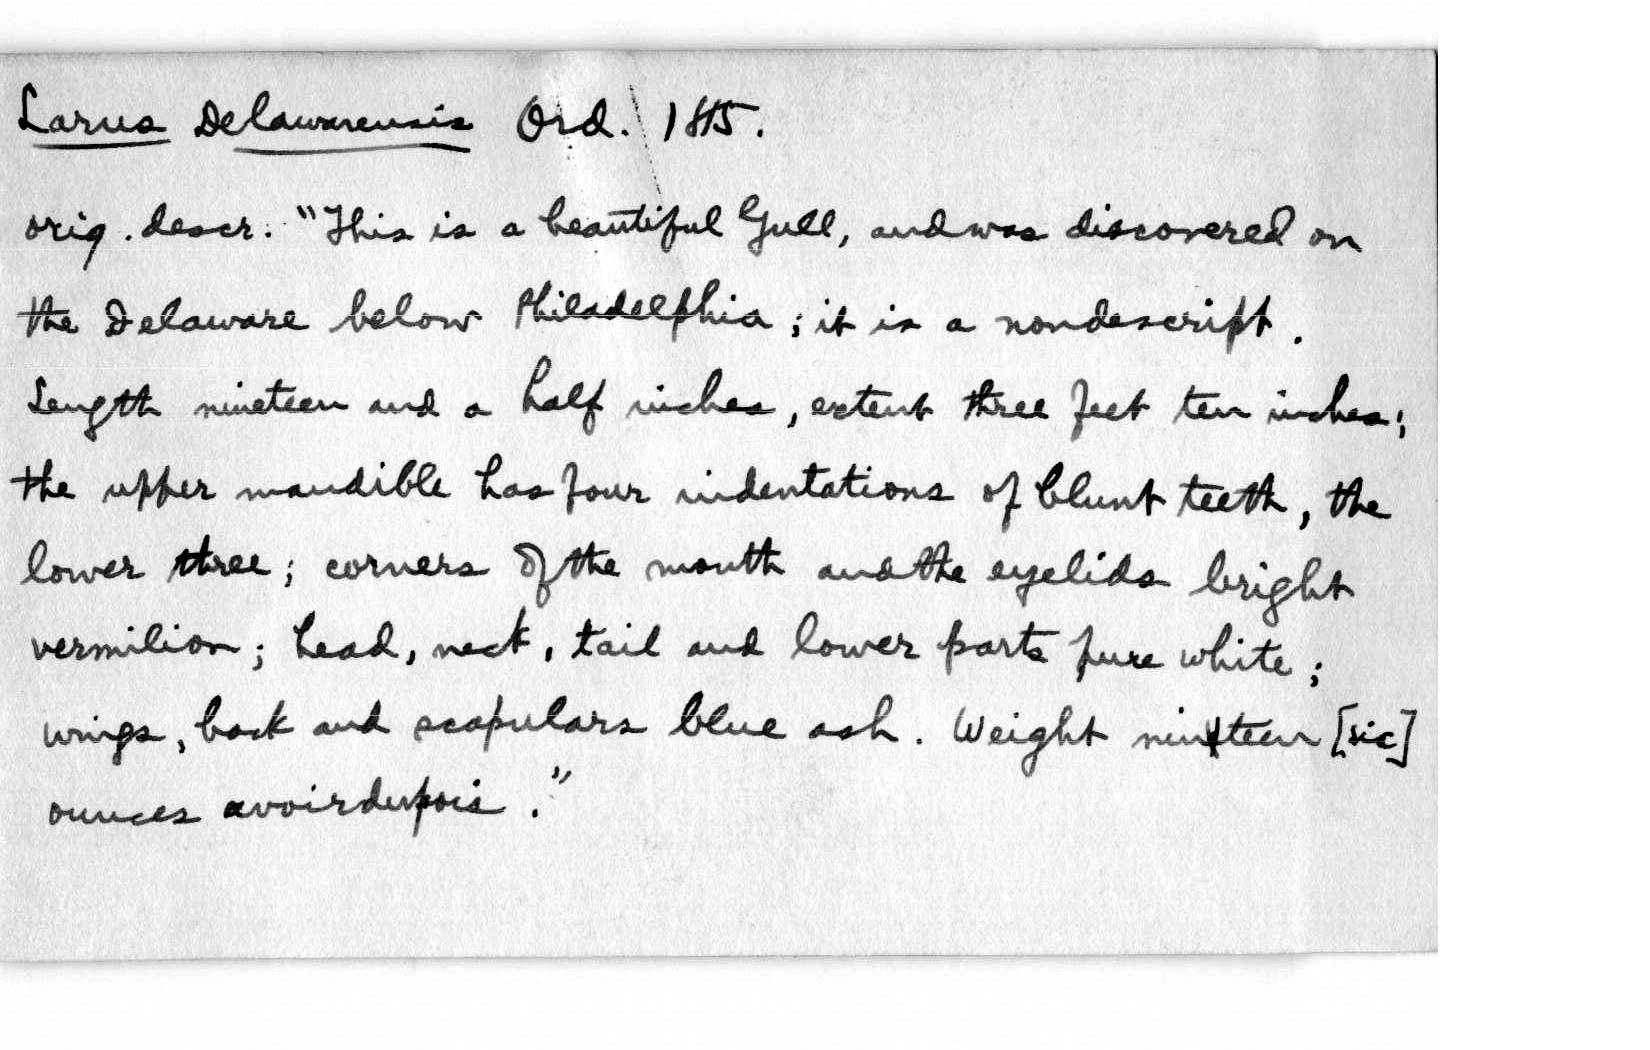 Larus Delawarensis Ord. 1815.
orig. descr: "This is a beautiful Gull, and was discovered on
the Delaware below Philadelphia; it is a nondescript.
Length nineteen and a half inches, extent three feet ten inches;
the upper mandible has four indentations of blunt teeth, the
lower three; corners of the mouth and the eyelids bright
vermilion; head, neck, tail and lower parts pure white;
wings, back and scapulars blue ash. Weight ninteen [sic]
ounces avoirdupois."